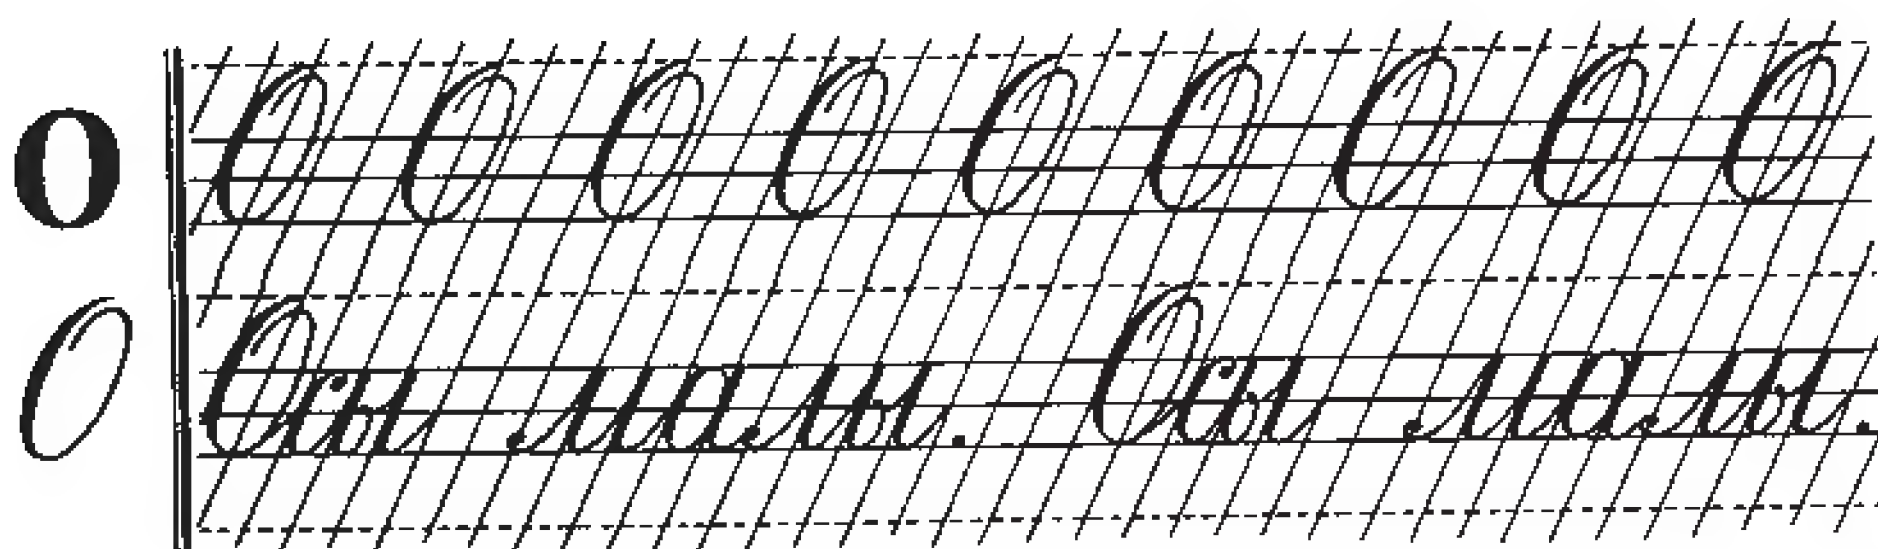 О О О О О О О О О О
О Осы малы. Осы малы.